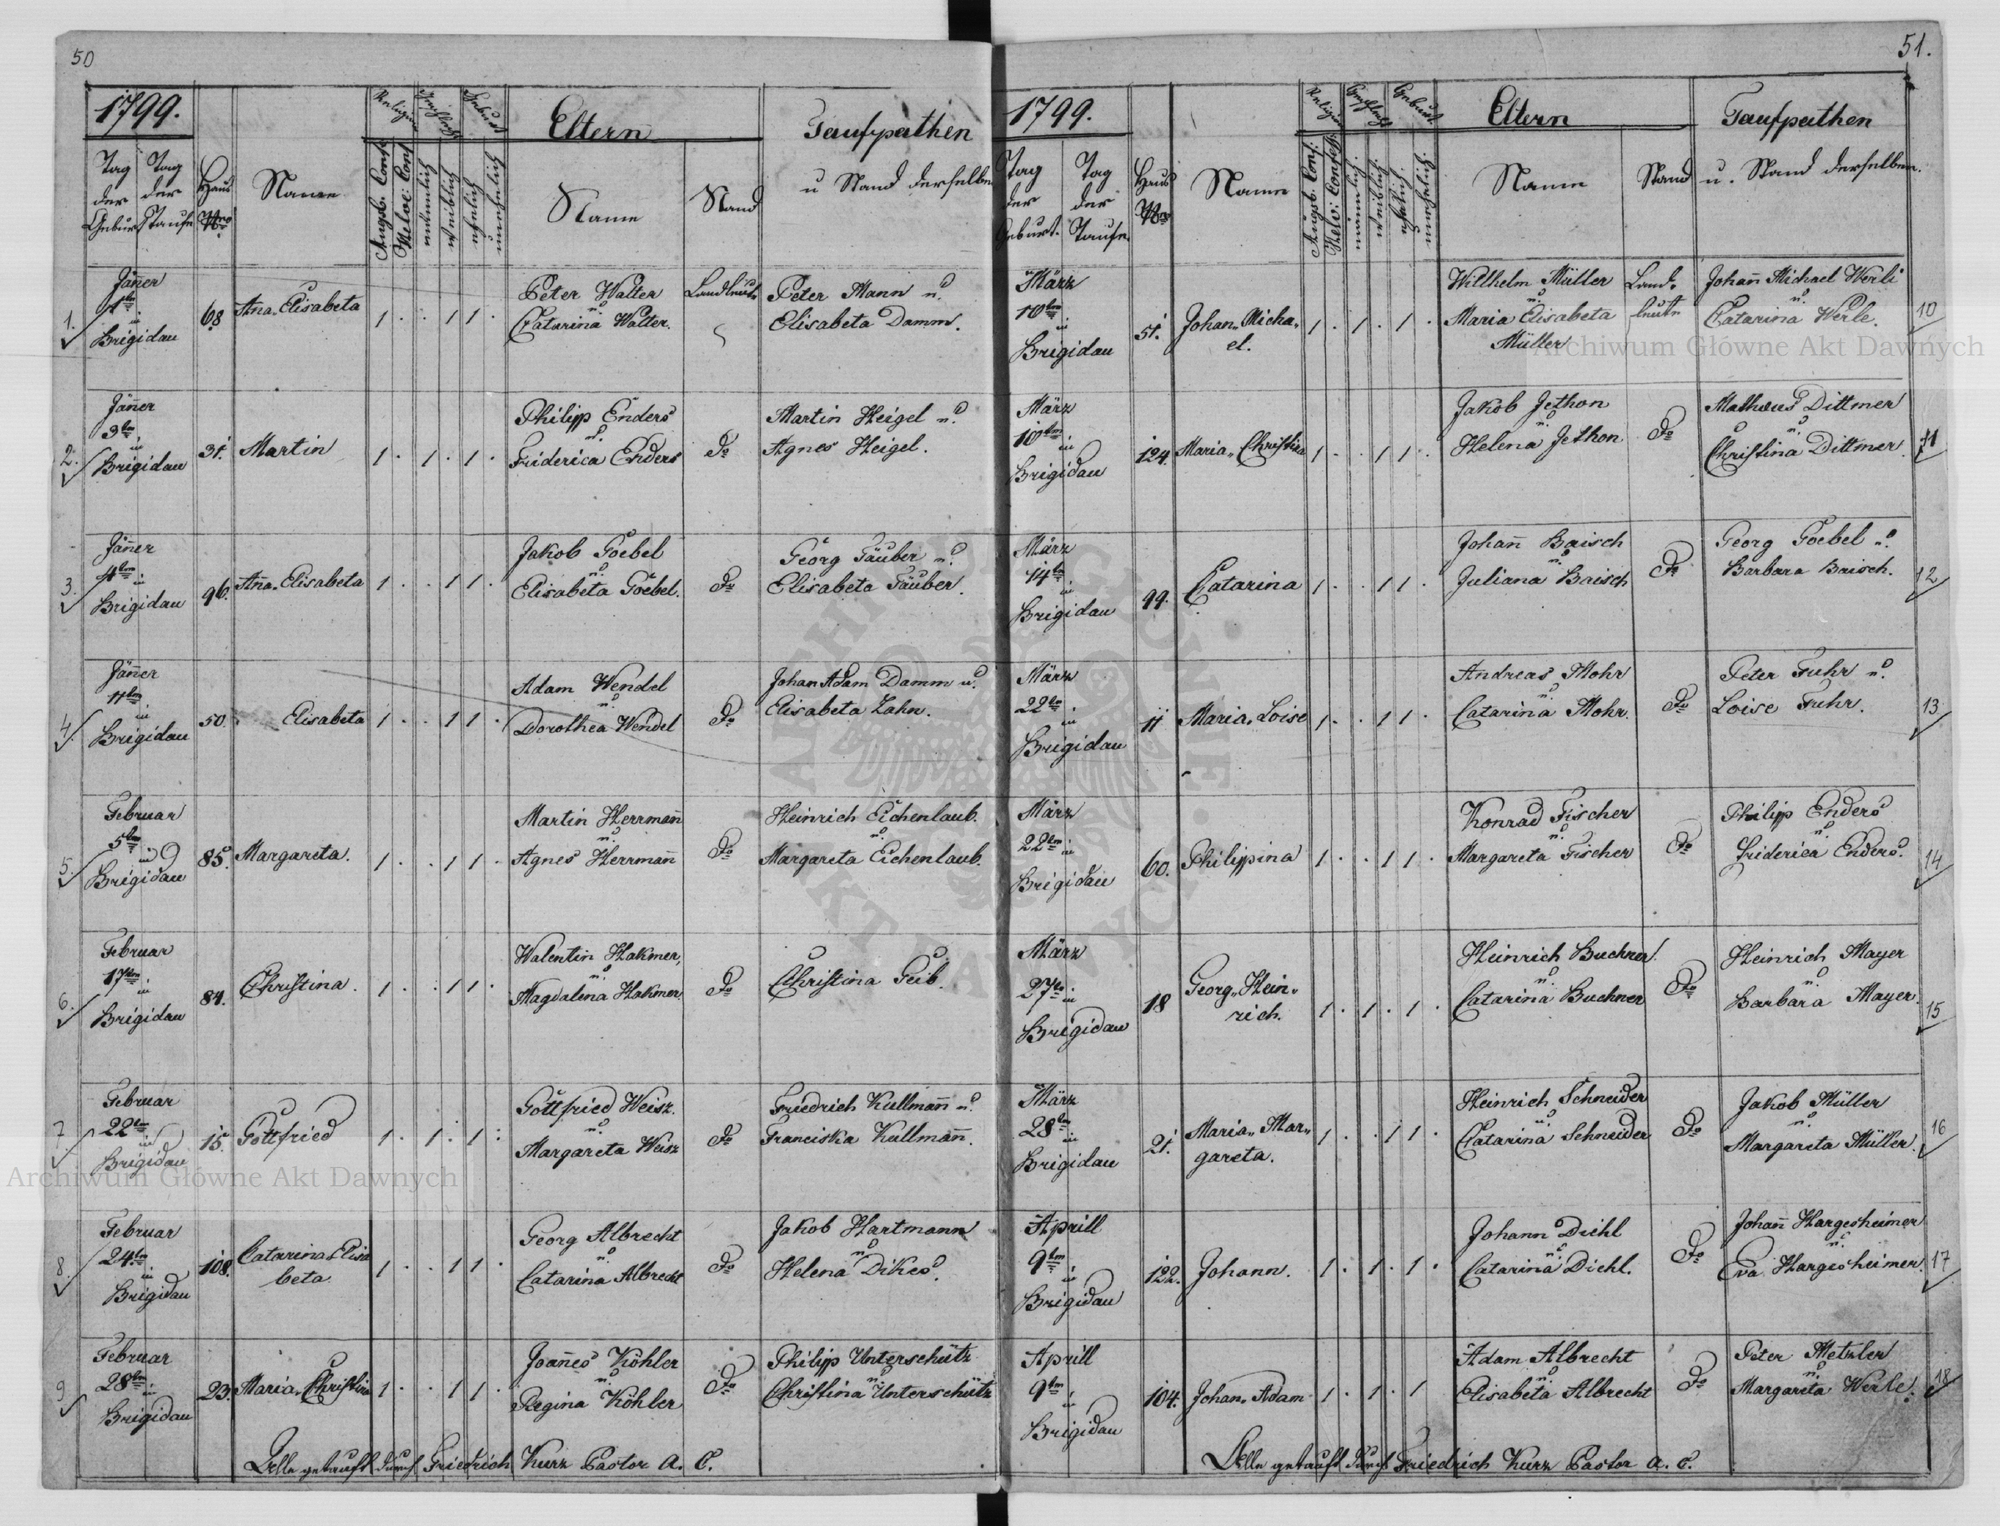 50
1799.
Religion
Geschlecht
Geburt
Eltern
Taufpathen
u Stand derselben
Tag der Geburt
Tag der Taufe
Haus Nro
Name
Augsb. Conf.
Helv: Conf
männlich
weiblich
ehelich
unehelich
Name
Stand
1. Jänner 1ten in Brigidau 68 Aña Elisabeta 1 . . 1 1 . Peter Walter u. Catarina Walter. Landleute Peter Mann u. Elisabeta Damm.
2. Jänner 3ten in Brigidau 31. Martin 1 . 1 . 1 . Philipp Enders u. Friderica Enders do Martin Heigel u. Agnes Heigel.
3. Jänner 4ten in Brigidau 96. Aña Elisabeta 1 . . 1 1 . Jakob Goebel u. Elisabeta Goebel. do Georg Täuber u. Elisabeta Täuber.
4. Jänner 11ten in Brigidau 50. Elisabeta 1 . . 1 1 . Adam Wendel u. Dorothea Wendel do Johan Adam Damm u. Elisabeta Zahn.
5. Februar 5ten in Brigidau 85. Margareta. 1 . . 1 1 . Martin Herrmañ u. Agnes Herrmañ do Heinrich Eichenlaub. u. Margareta Eichenlaub.
6. Februar 17ten in Brigidau 84. Christina. 1 . . 1 1 . Walentin Hakmer, u. Magdalena Hakmer do Christina Geib.
7. Februar 22ten in Brigidau 15. Gottfried 1 . 1 . 1 . Gottfried Weisz. u. Margareta Weisz do Friedrich Kullmañ u. Franciska Kullmañ.
8. Februar 24ten in Brigidau 108. Catarina Elisabeta 1 . . 1 1 . Georg Albrecht u. Catarina Albrecht do Jakob Hartmann u. Helena Dikes.
9. Februar 28ten in Brigidau 23. Maria Christina 1 . . 1 1 . Joañes Köhler u. Regina Köhler do Philipp Unterschütz u. Christina Unterschütz
Alle getauft durch Friedrich Kurz Pastor A. C.
51.
1799.
Religion
Geschlecht
Geburt.
Eltern
Taufpathen
u. Stand derselben.
Tag der Geburt.
Tag der Taufe.
Haus Nro
Name
Augsb. Conf.
Helv: Confess.
männlich.
weiblich.
ehelich.
unehelich.
Name
Stand
März 10ten in Brigidau 51. Johan Michael. 1 . 1 . 1 . Willhelm Müller u. Maria Elisabeta Müller Landleute Johañ Michael Werli u. Catarina Werle. 10
März 10ten in Brigidau 124. Maria Christina 1 . . 1 1 . Jakob Jethon u. Helena Jethon do Matheus Dittmer u. Christina Dittmer. 11
März 14ten in Brigidau 99. Catarina 1 . . 1 1 . Johañ Baisch u. Juliana Baisch do Georg Goebel u. Barbara Baisch. 12
März 22ten in Brigidau 11 Maria Loise 1 . . 1 1 . Andreas Mohr u. Catarina Mohr. do Peter Fuhr u. Loise Fuhr. 13
März 22ten in Brigidau 60. Philippina 1 . . 1 1 . Konrad Fischer u. Margareta Fischer do Philipp Enders u. Friderica Enders. 14
März 27ten in Brigidau 18 Georg Heinrich. 1 . 1 . 1 . Heinrich Buchner u. Catarina Buchner do Heinrich Mayer u. Barbara Mayer. 15
März 28ten in Brigidau 21. Maria Margareta. 1 . . 1 1 . Heinrich Schneider u. Catarina Schneider do Jakob Müller u. Margareta Müller. 16
Aprill 9ten in Brigidau 122. Johann. 1 . 1 . 1 . Johann Diehl u. Catarina Diehl. do Johañ Hargesheimer u. Eva Hargesheimer. 17
Aprill 9ten in Brigidau 104. Johan Adam 1 . 1 . 1 Adam Albrecht u. Elisabeta Albrecht do Peter Metzler u. Margareta Werle. 18
Alle getauft durch Friedrich Kurz Pastor A. C.
Archiwum Główne Akt Dawnych
Archiwum Główne Akt Dawnych
ARCHIWUM GŁÓWNE AKT DAWNYCH